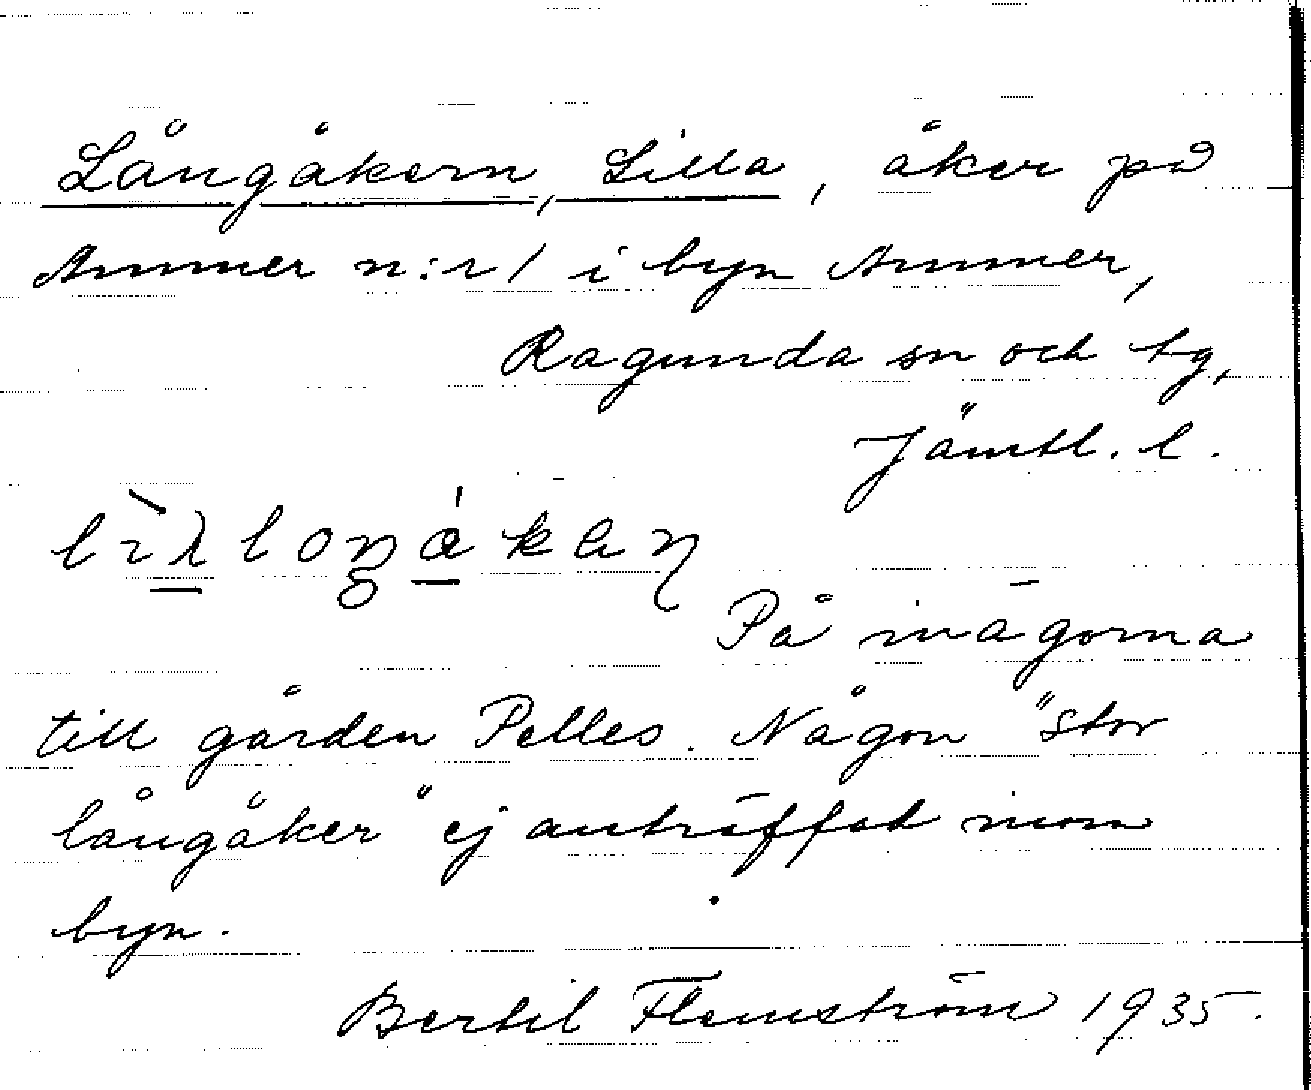 Långåkern, Lilla, åker på
Ammer n:r 1 i byn Ammer,
Ragunda sn och tg,
Jämtl. l.
På inägorna
till gården Pelles. Någon "stor
långåker" ej anträffad inom
byn.
Bertil Flemström 1935.